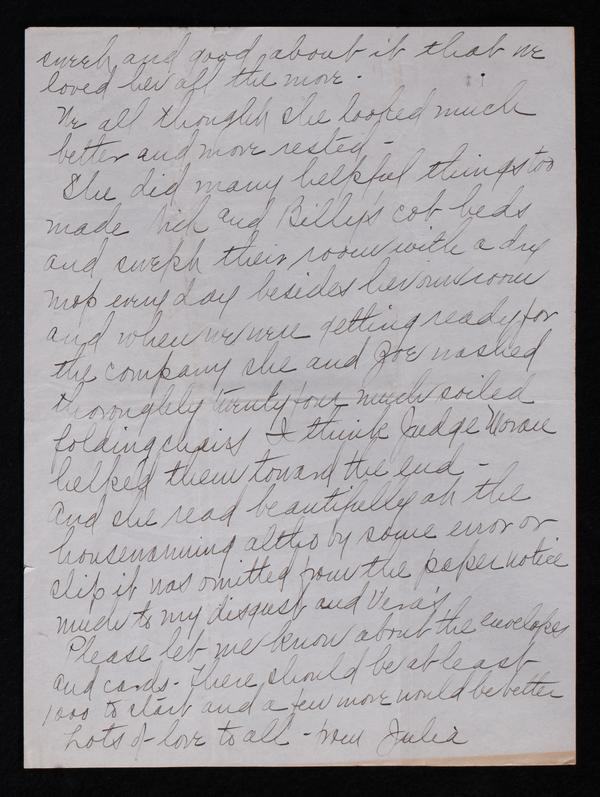 sweet and good about it that we
loved her all the more.
We all thought she looked much
better and more rested -
She did many helpful things too
made Nick and Billys cot beds
and swept their room with a dry
mop every day besides her own room
and when we were getting ready for
the company she and Joe washed
thoroughly twenty four much soiled
folding chairs I think Judge
helped them toward the end -
and she read beautifully at the
housewarming altho by some error or
slip it was omitted from the paper notice
much to my disgust and Vera's
Please let me know about the envelopes
and cards - There should be at least
1000 to start and a few more would be better
Lots of love to all - from Julia